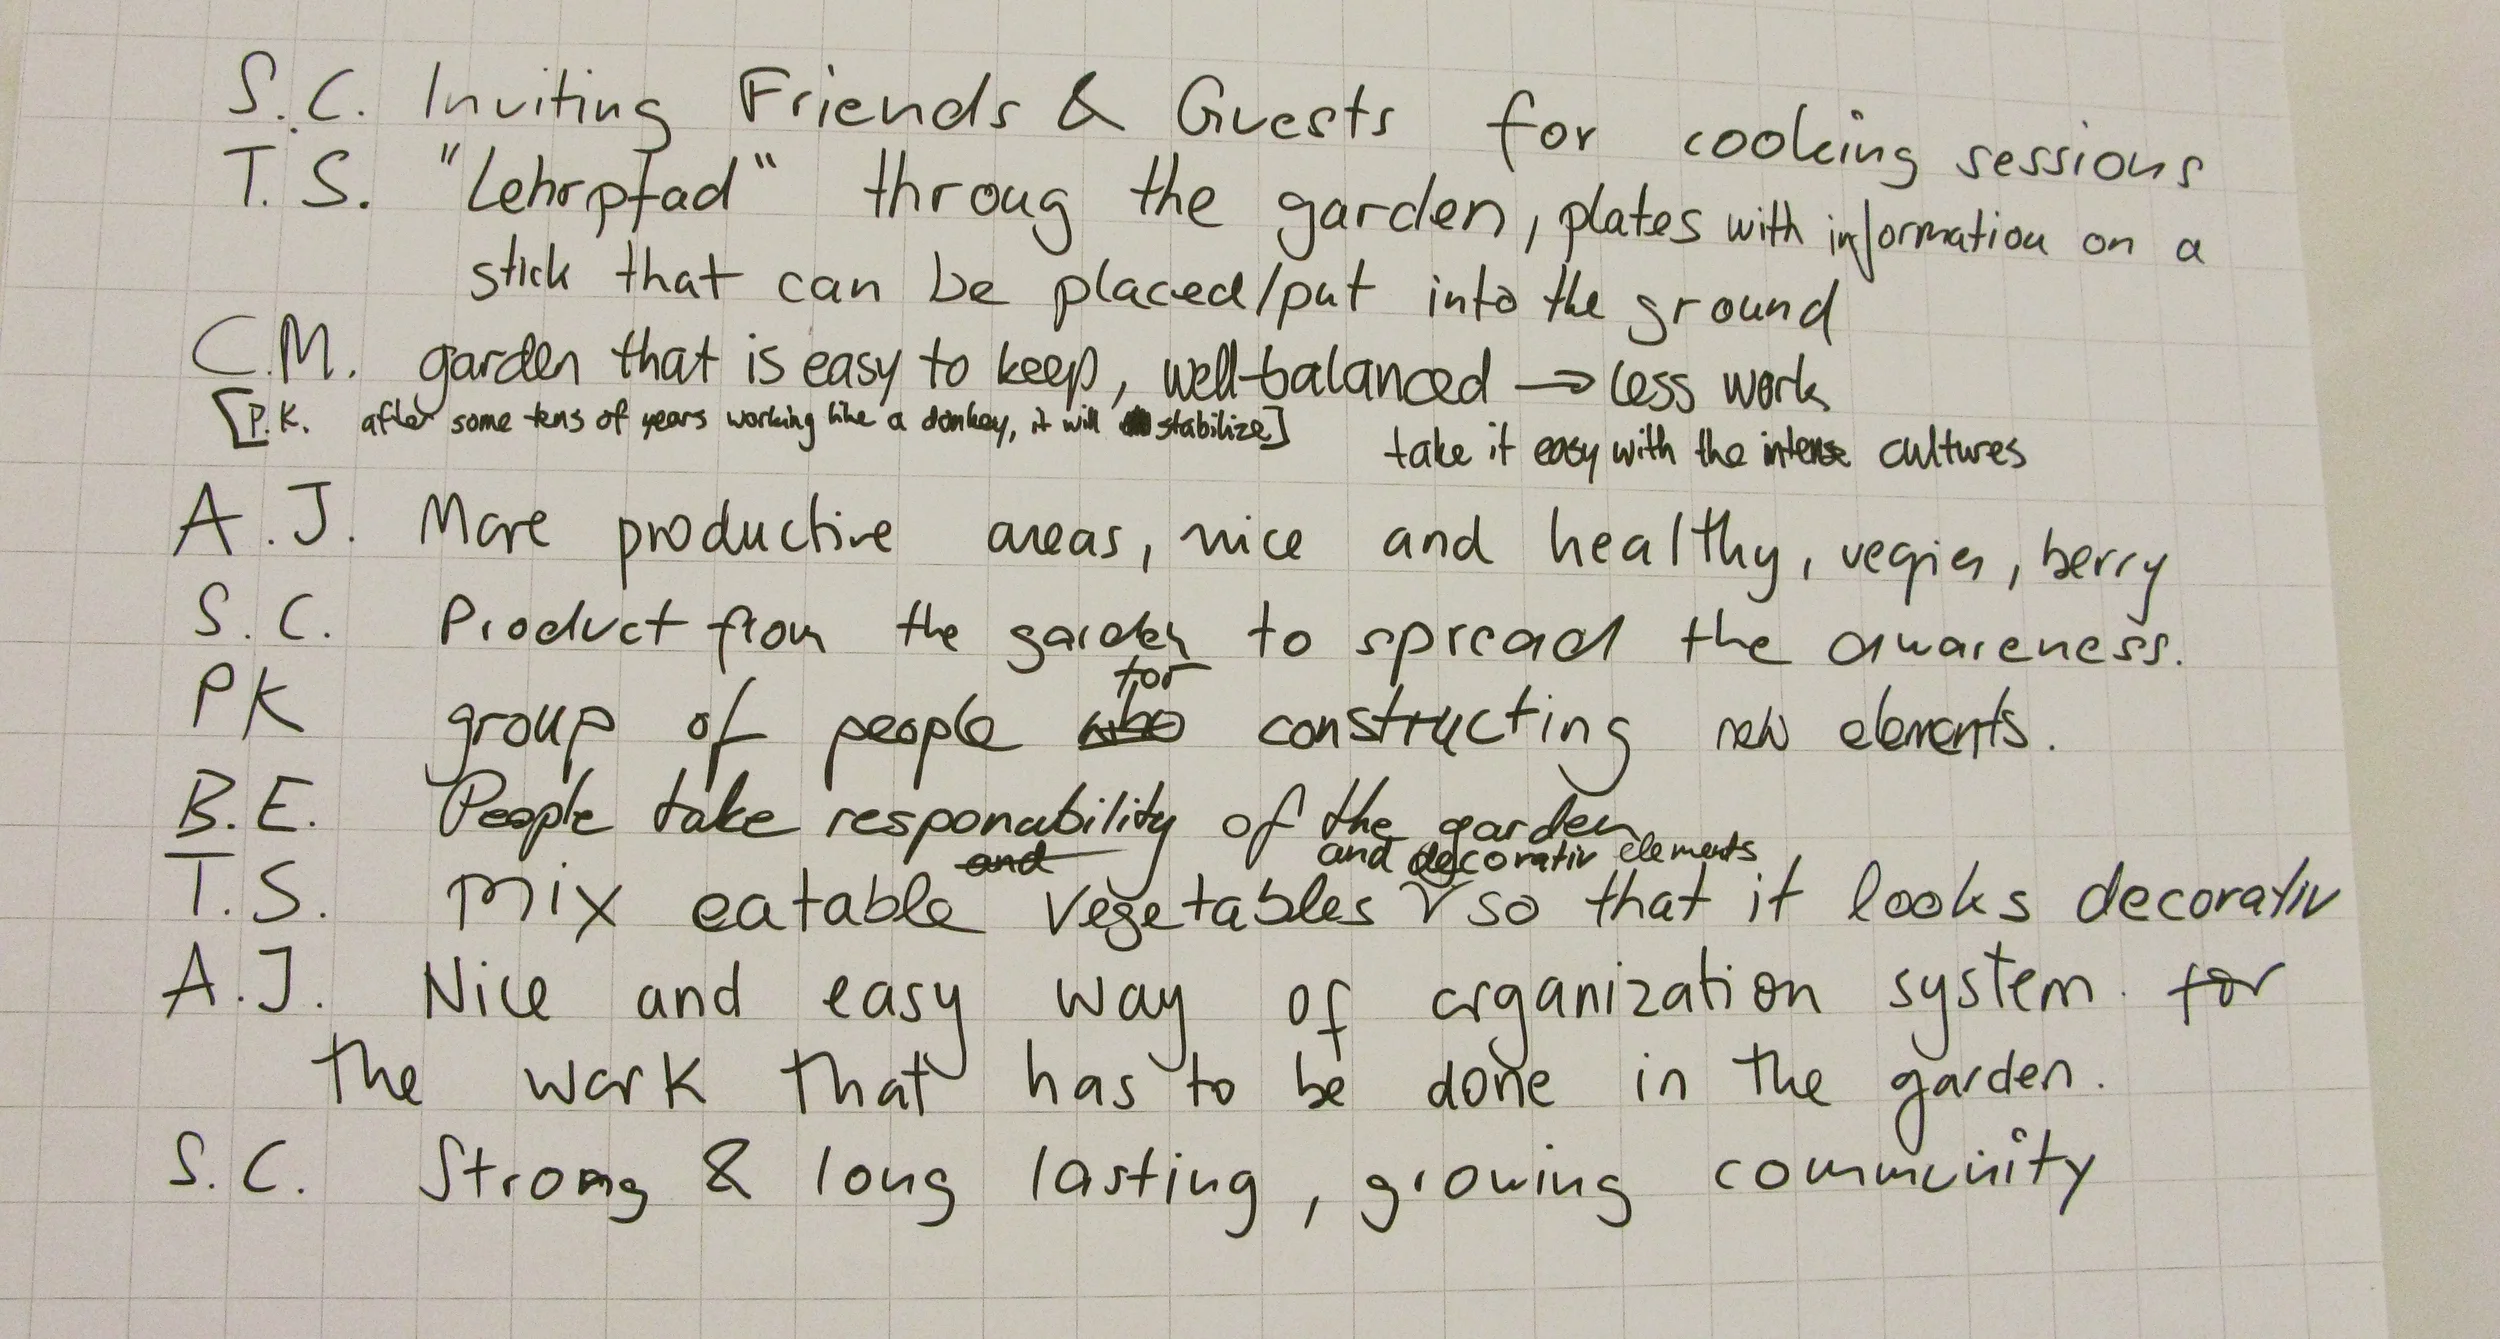 S.C. Inviting Friends & Guests for cooking sessions
T.S. "Lehrpfad" throug the garden, plates with information on a
stick that can be placed/put into the ground
C.M. garden that is easy to keep, well-balanced → less work
[P.K. after some tens of years working like a donkey, it will stabilize]
take it easy with the intense cultures
A.J. More productive areas, nice and healthy, vegies, berry
S.C. Product from the garden to spread the awareness.
PK group of people for constructing new elements.
B.E. People take responability of the garden
and decorativ elements
T.S. Mix eatable vegetables so that it looks decorativ
A.J. Nice and easy way of organization system for
the work that has to be done in the garden.
S.C. Strong & long lasting, growing community